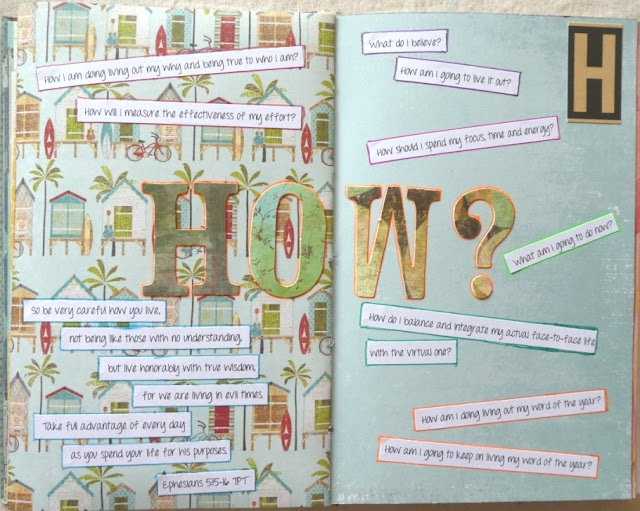 How I am doing living out my why and being true to who I am?
How will I measure the effectiveness of my effort?
HOW?
so be very careful how you live,
not being like those with no understanding,
but live honorably with true wisdom,
for we are living in evil times.
Take full advantage of every day
as you spend your life for his purposes.
Ephesians 5:15-16 TPT
What do I believe?
How am I going to live it out?
H
How should I spend my focus, time and energy?
What am I going to do now?
How do I balance and integrate my actual face-to-face life
with the virtual one?
How am I doing living out my word of the year?
How am I going to keep on living my word of the year?